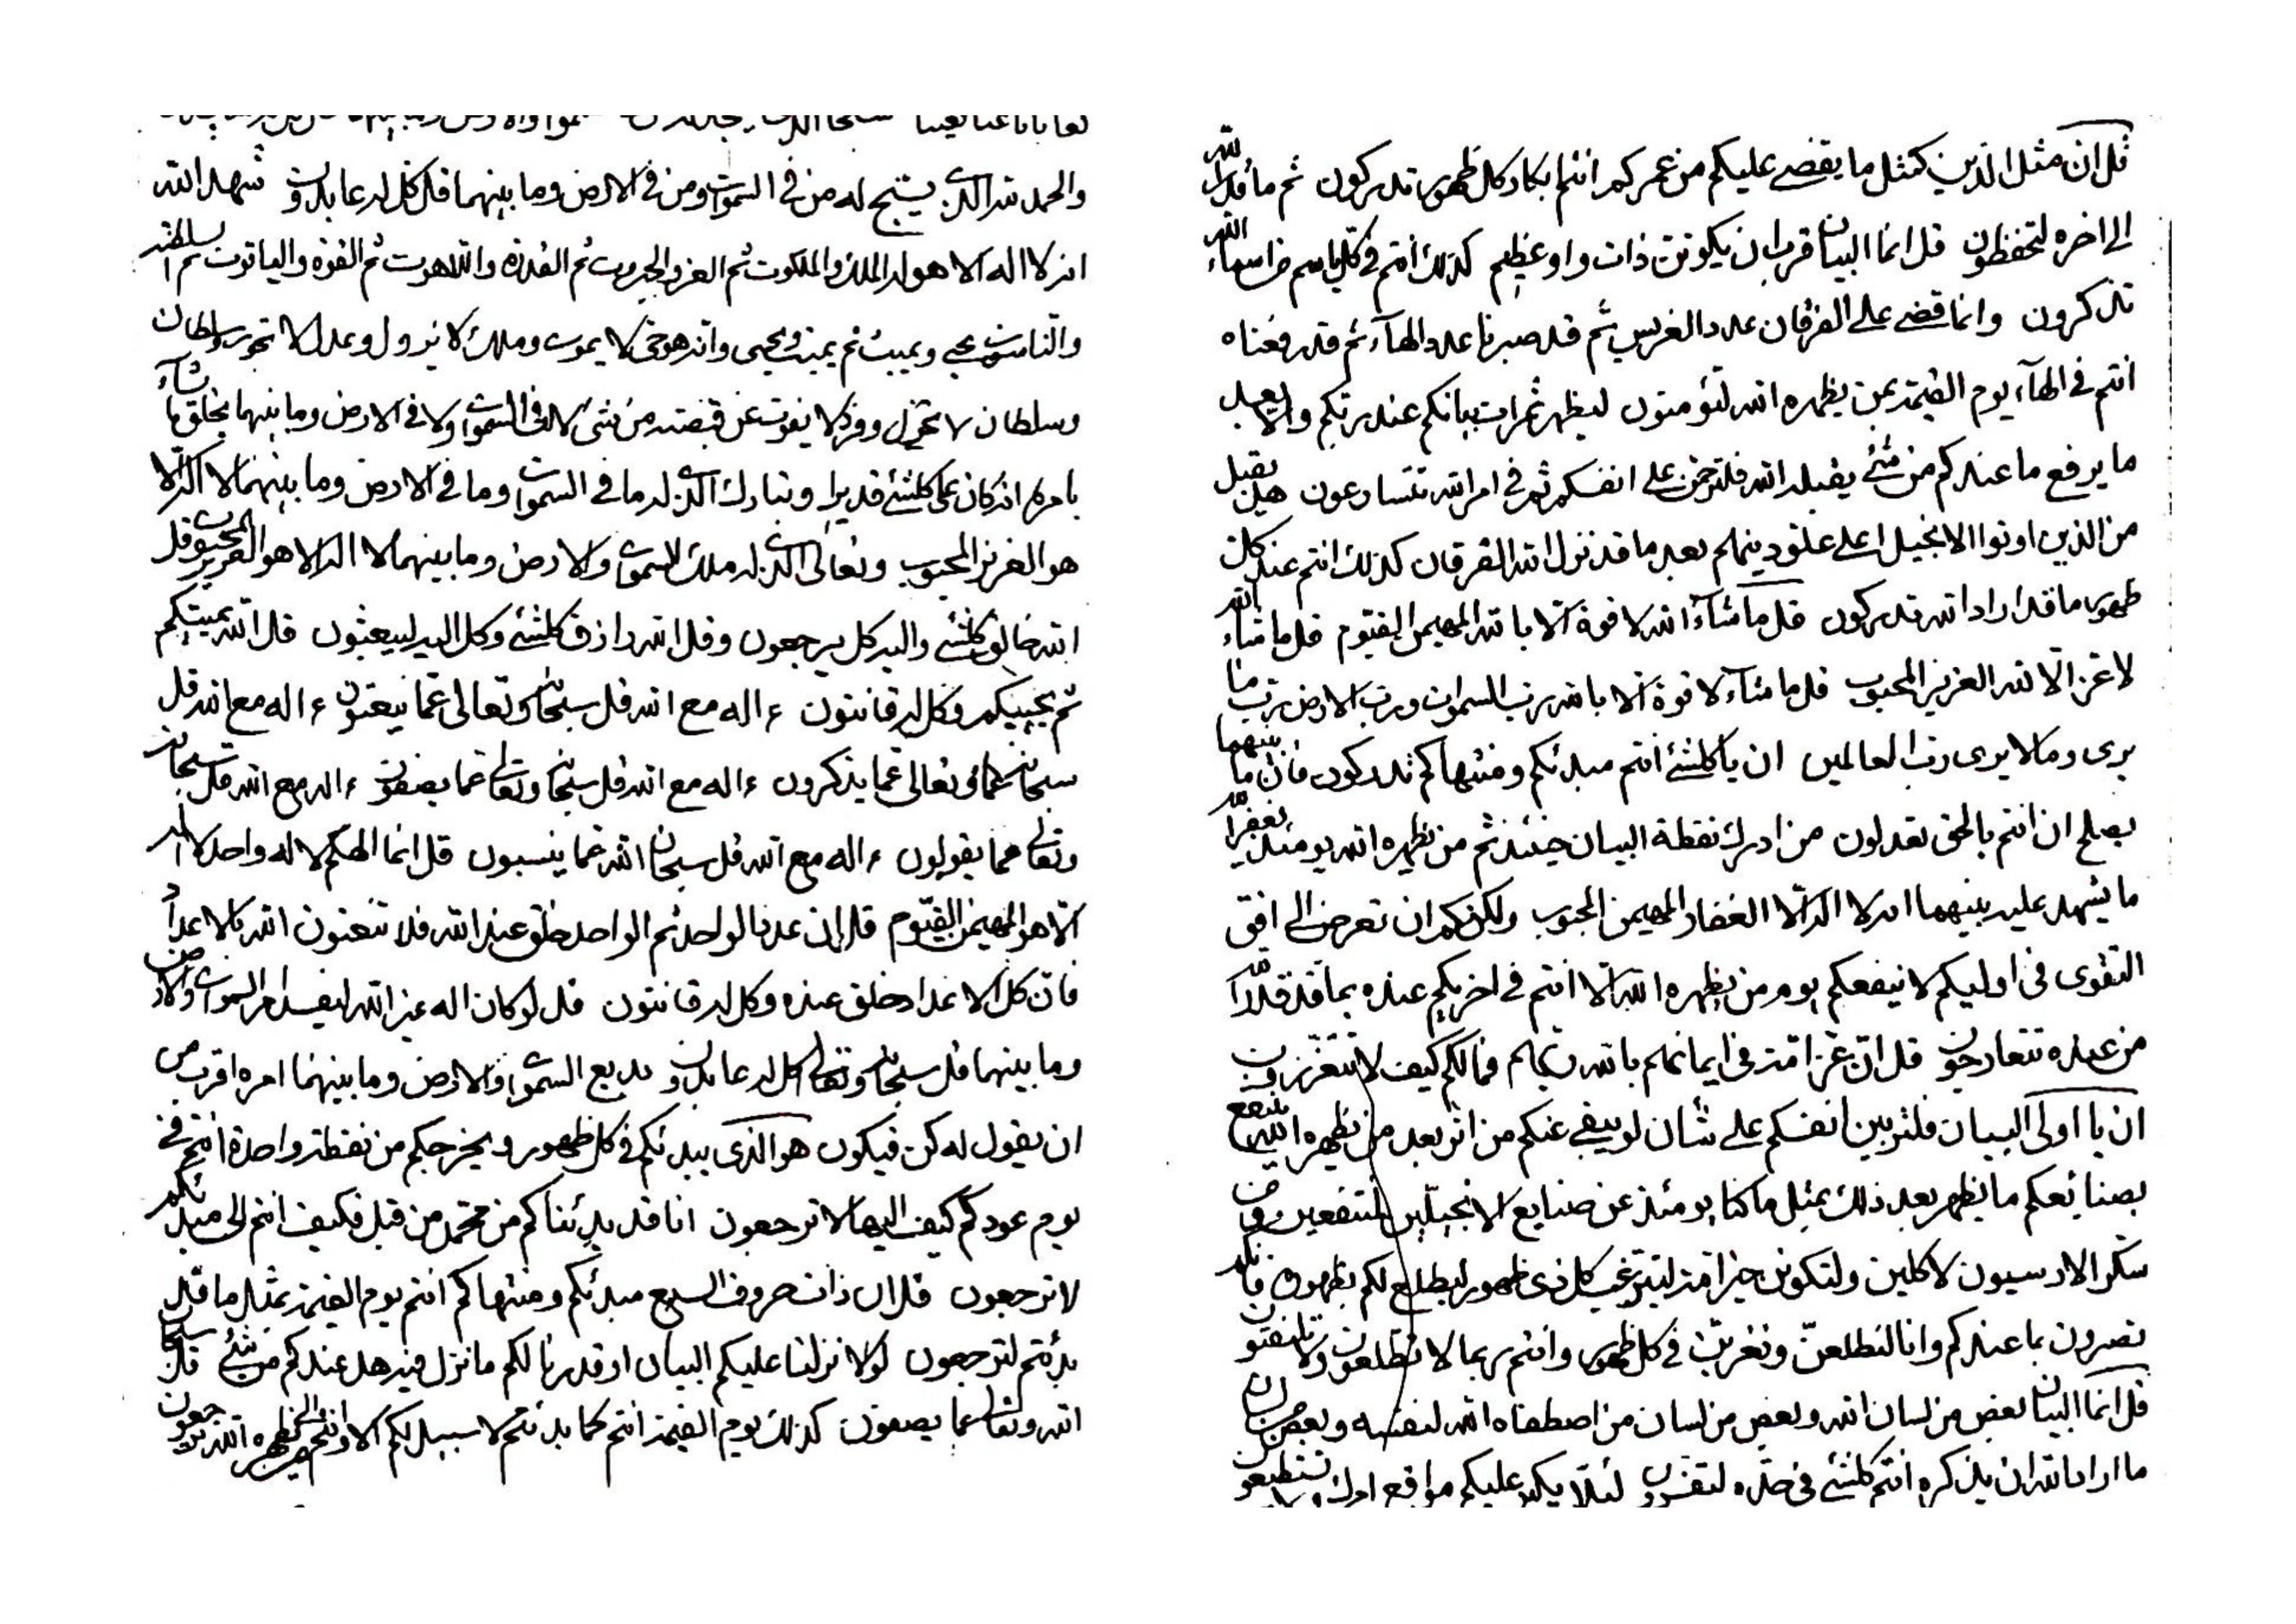 قل ان مثل الدين كمثل ما يقضى عليكم من عمركم انتم بكاد كل ظهور تدركون ثم ما قدر الله
الى اخره لتحفظون قل انما البيان قرب ان يكونن ذات واو عظيم كذلك انتم في كل باسم من اسماء الله
تذكرون وانما قضى على الفرقان عدد الغرس ثم قد صبرنا عدد الهآء ثم قد رفعناه
انتم في الهآء يوم القيمة بمن يظهره الله لتؤمنون ليظهر ثمرات بيانكم عند ربكم والا بعد
ما يرفع ما عندكم من شئ يقبله الله فلترحمن على انفسكم ثم في امر الله تتسارعون هل يقبل
من الذين اوتوا الانجيل اعلى علو دينهم بعد ما قد نزل الله الفرقان كذلك انتم عند كل
ظهور ما قد اراد الله تدركون قل ما شآء الله لا قوة الا بالله المهيمن القيوم قل ما شاء الله
لا عز الا لله العزيز المحبوب قل ما شآء لا قوة الا بالله رب السموات ورب الارض رب ما
يرى وما لا يرى رب العالمين ان يا كلشئ انتم مبدئكم ومنتهاكم تدركون فان ما بينهما
يصلح ان انتم بالحق تعدلون من ادرك نقطة البيان حينئذ ثم من يظهره الله يومئذ يغفر الله
ما يشهد عليه بينهما انه لا اله الا الغفار المهيمن المحبوب ولكنكم ان تعرضن الى افق
التقوى في اوليكم لا ينفعكم يوم من يظهره الله الا انتم في اخريكم عنده بما قد قدر الله
من عنده تتعارجون قل ان عز امة في ايمانهم بالله ربهم فما لكم كيف لا تتعززون
ان يا اولى البيان فلتربين انفسكم على شان لو يبقى عنكم من اثر بعد من يظهره الله ينتفع
بصنايعكم ما يظهر بعد ذلك بمثل ما كنا يومئذ عن صنايع الانجيليين لمنتفعين ومن
سكر الارسيون لاكلين ولتكونن خير امة ليترغب كل ذى ظهور ليطلع لكم بظهوره فانه
تصرون بما عندكم وانا لنطلعن ونغربن في كل ظهور وانتم ربما لا تطلعون ولا تلتفتون
قل انما البيان بعض من لسان الله وبعض من لسان من اصطفاه الله لنفسه وبعض من لسان
ما اراد الله ان يذكره انتم كلشئ في حده لتقرون لئلا يكبر عليكم مواقع امرك تستطيعون
والحمد لله الذى يسبح له من في السموات ومن في الارض وما بينهما قل كل له عابدون شهد الله
انه لا اله الا هو له الملك والملكوت ثم العز والجبروت ثم القدرة واللاهوت ثم القوة والياقوت ثم السلطنة
والناسوت يحيى ويميت ثم يميت ويحيى وانه هو حى لا يموت وملك لا يزول وعدل لا يجور وسلطان
وسلطان لا يحول وفرد لا يفوت عن قبضته من شئ لا في السموات ولا في الارض وما بينهما يخلق ما يشآء
بامره انه كان على كلشئ قديرا وتبارك الذى له ما في السموات وما في الارض وما بينهما لا اله الا
هو العزيز المحبوب وتعالى الذى له ملك السموات والارض وما بينهما لا اله الا هو العزيز المحبوب قل
الله خالق كلشئ واليه كل يرجعون وقل الله رازق كلشئ وكل اليه ليبعثون قل الله يميتكم
ثم يحييكم وكل له قانتون ءاله مع الله قل سبحانه وتعالى عما ينعتون ءاله مع الله قل
سبحانه وتعالى عما يذكرون ءاله مع الله قل سبحانه وتعالى عما يصفون ءاله مع الله قل سبحانه
وتعالى عما يقولون ءاله مع الله قل سبحان الله عما ينسبون قل انما الهكم لاله واحد لا اله
الا هو المهيمن القيوم قل ان عدد الواحد ثم الواحد خلق عند الله فلا تنعتون الله بالاعداد
فان كل الاعداد خلق عنده وكل له قانتون قل لو كان اله غير الله ليفسد امر السموات والارض
وما بينهما قل سبحانه وتعالى كل له عابدون بديع السموات والارض وما بينهما امره اقرب من
ان يقول له كن فيكون هو الذى يبدئكم في كل ظهور ويخرجكم من نقطة واحدة انتم في
يوم عودكم كيف اليها لا ترجعون انا قد بدئناكم من محمد من قبل فكيف انتم الى مبدئكم
لا ترجعون قل ان ذات حروف السبع مبدئكم ومنتهاكم انتم يوم القيمة بمثل ما قد
بدئتم لترجعون لولا نزلنا عليكم البيان او قدرنا لكم ما نزل فيه هل عندكم من شئ قل سبحان
الله وتعالى عما يصفون كذلك يوم القيمة انتم كما بدئتم لا سبيل لكم الا وانتم الى من يظهره الله ترجعون